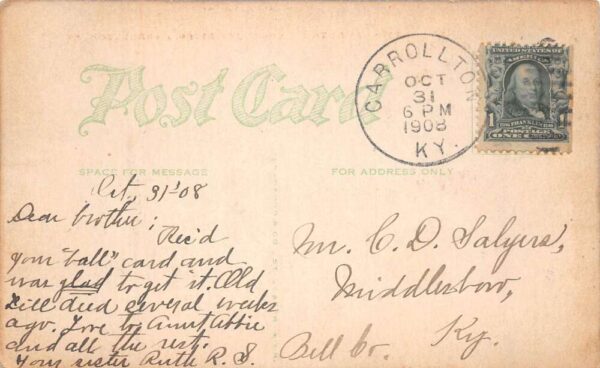 Post Card
CARROLLTON
OCT
31
6 PM
1908
KY.
UNITED STATES OF
AMERICA
FRANKLIN
1 POSTAGE
ONE CENT
SPACE FOR MESSAGE
FOR ADDRESS ONLY
Oct. 31'08
Dear brother;
Rec'd
your "ball" card and
was glad to get it. Old
died several weeks
ago. Love to Aunt Abbie
and all the rest.
Your sister Ruth R. S.
Mr. C. D. Salyers,
Middlesboro,
Ky.
Bell Co.